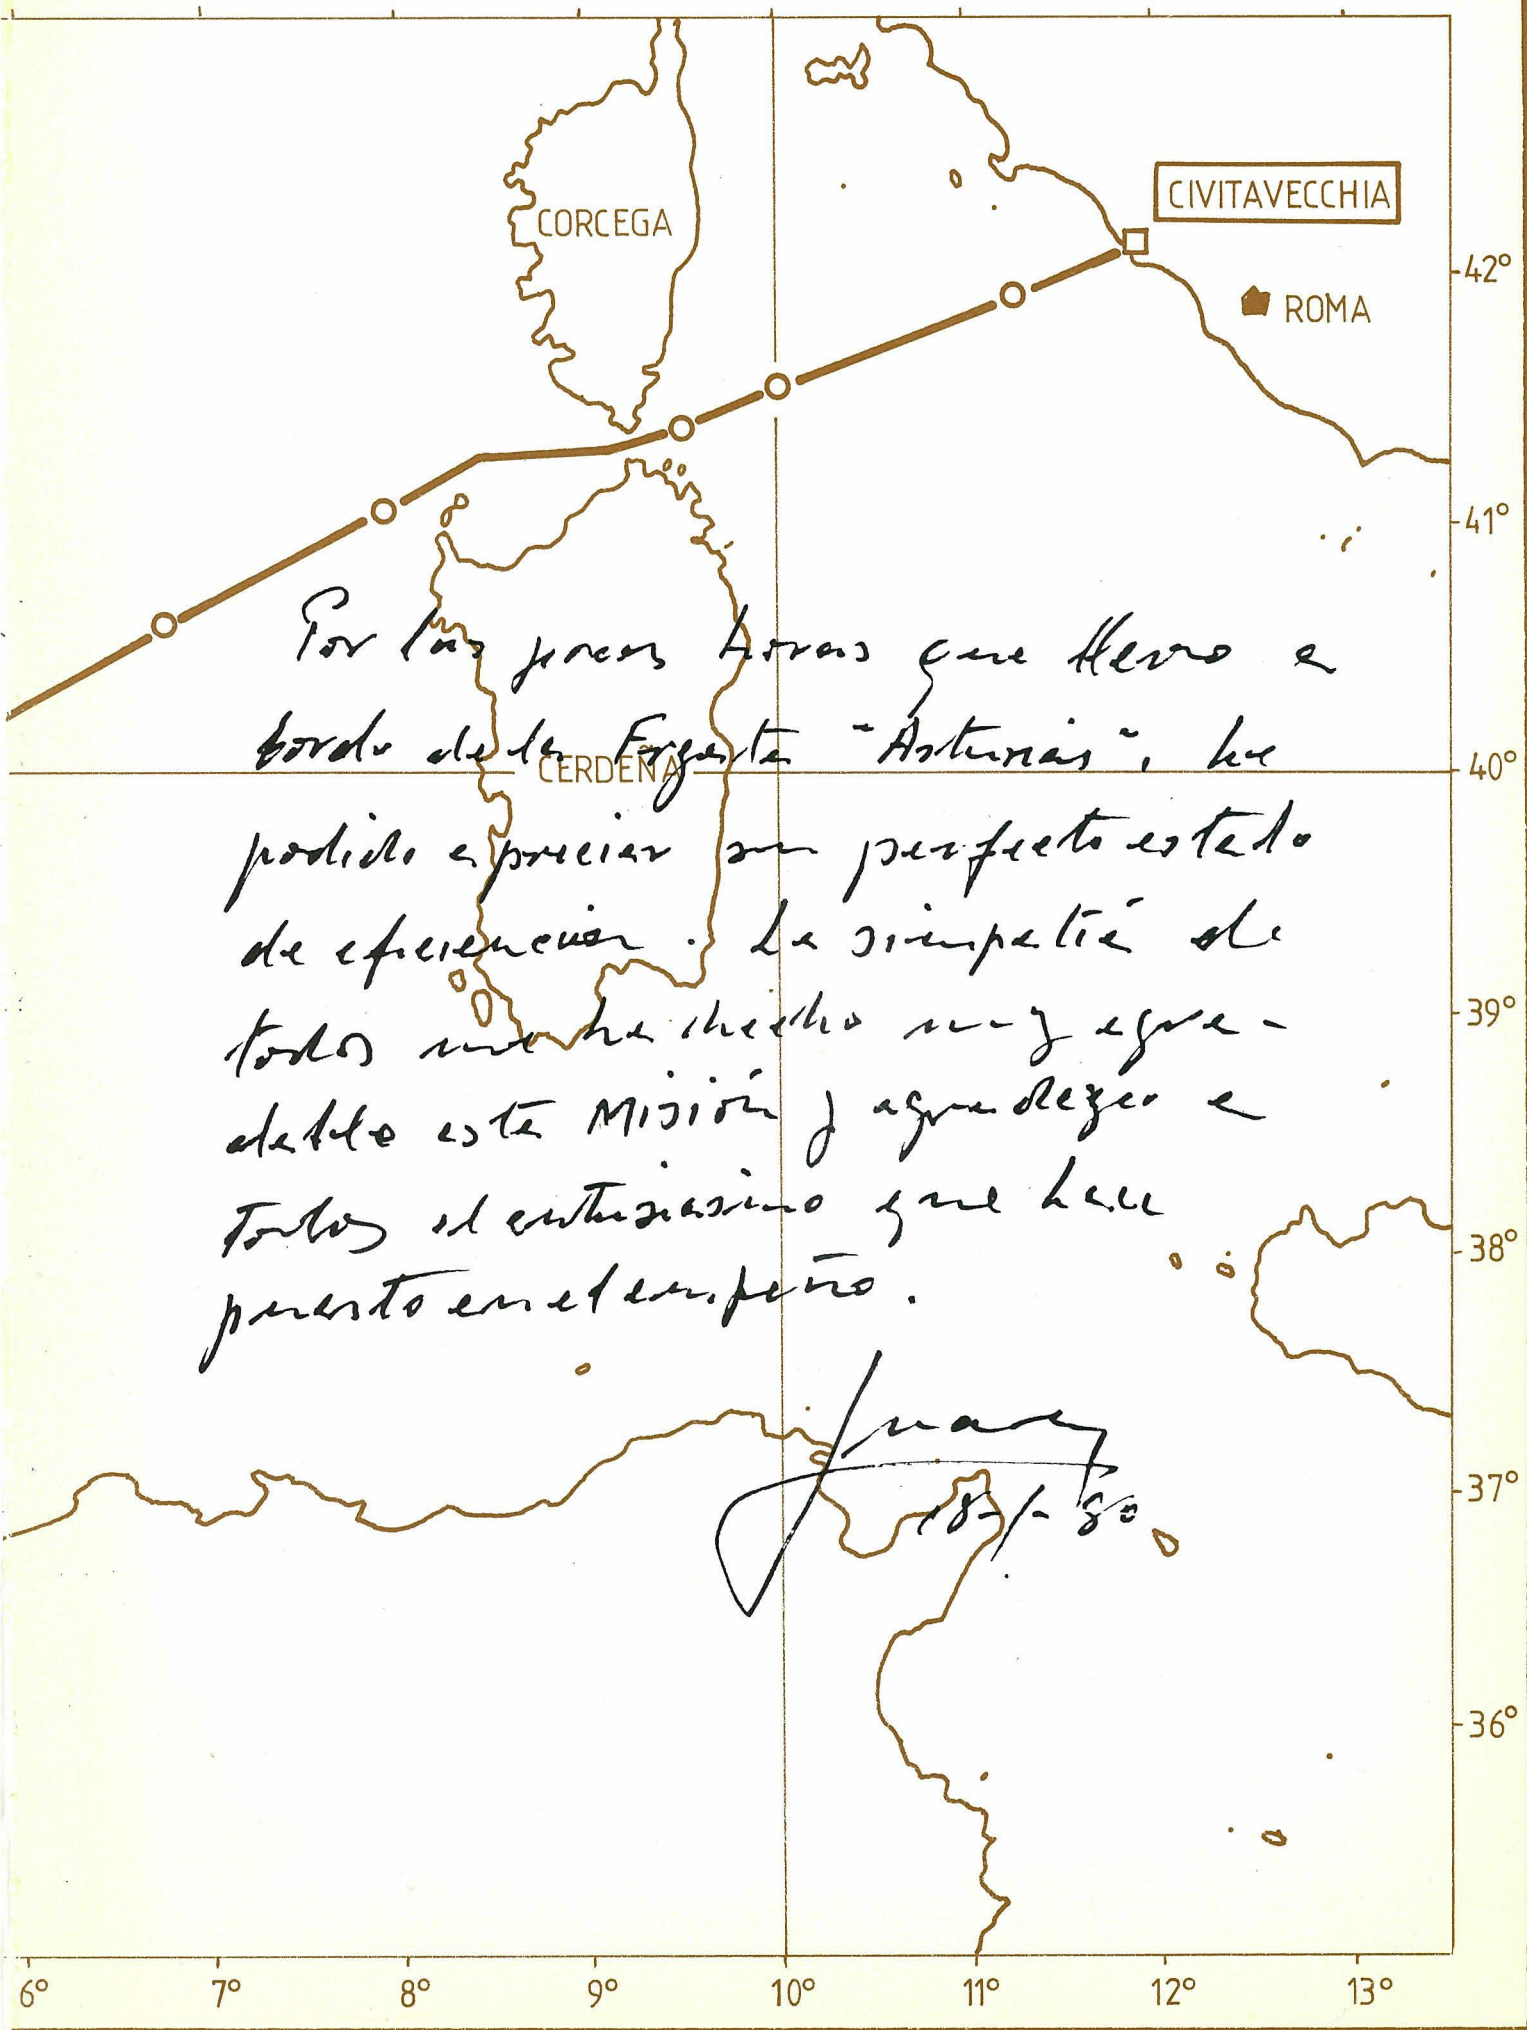 CORCEGA
CIVITAVECCHIA
42°
ROMA
41°
Por las pocas horas que llevo a
bordo de la Fragata "Asturias", he
CERDEÑA
40°
podido apreciar su perfecto estado
de eficiencia. La simpatía de
todos me ha hecho muy agra-
39°
dable esta Misión y agradezco a
todos el entusiasmo que han
38°
puesto en el empeño.
37°
18-1-80
36°
6° 7° 8° 9° 10° 11° 12° 13°